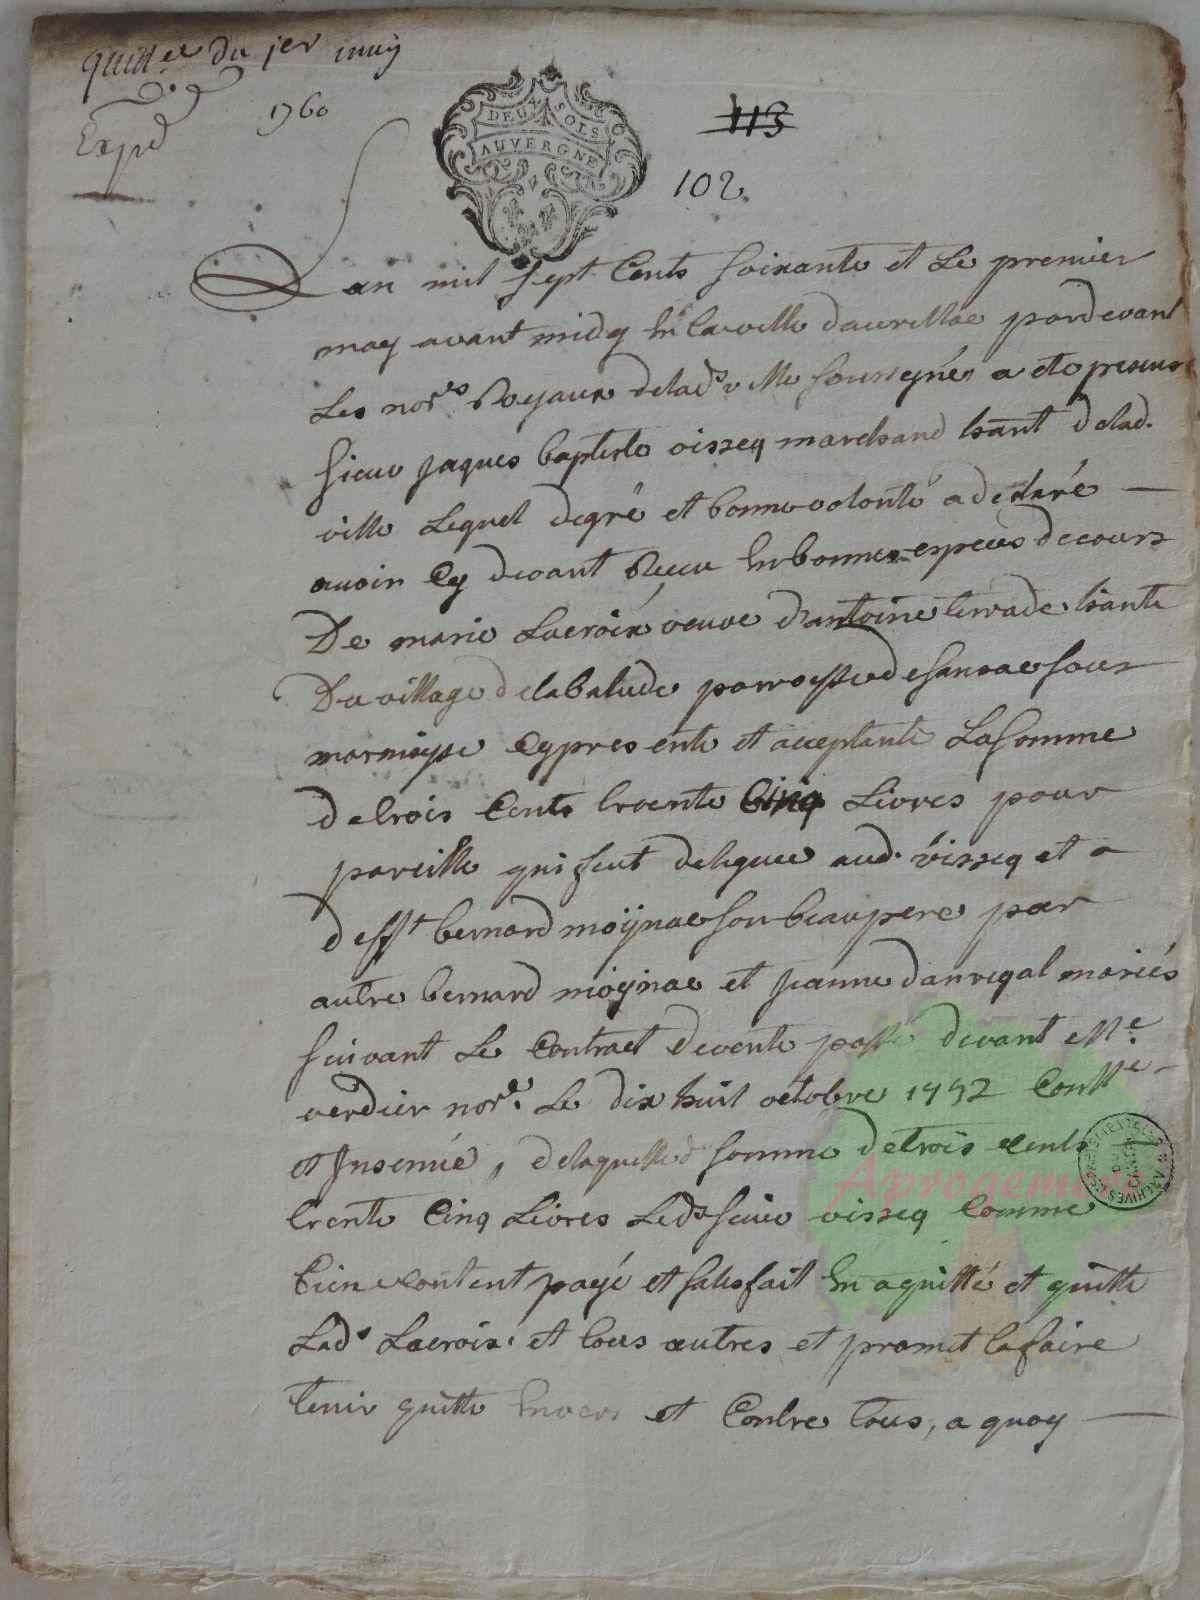 quitt.ce du 1er may
1760
Exped
DEUX SOLS
AUVERGNE
113
102
Lan mil sept Cents soixante et Le premier
may avant midy En la ville daurillac pardevant
Les nor.es Royaux de lad.e ville soussignés a eté present
sieur jaques baptiste visseq marchand hant de lad.
ville Lequel de gré et bonne volonté a declaré —
avoir Cy devant Reçu En bonnes especes de cours
De marie Lacroix veuve d'antoine terrade hante
Du village de labalude parroisse de sansac sous
marmiesse Cypresente et acceptante La somme
de trois Cents trente Cinq Livres pour
pareille qui feut deleguee aud. visseq et a
deff.t bernard moÿnac son beaupere par
autre bernard moÿnac et jeanne danregal mariés
suivant Le Contract de vente passé devant M.e
verdier nor.e Le dix huit octobre 1752 Conllé
et Insinué, de laquelle d somme de trois cents
trente Cinq Livres Led. sieur visseq Comme
bien Content payé et satisfait En a quitté et quitte
Lad. Lacroix et tous autres et promet la faire
tenir quitte Envers et Contre tous, a quoy —
Aprogemere